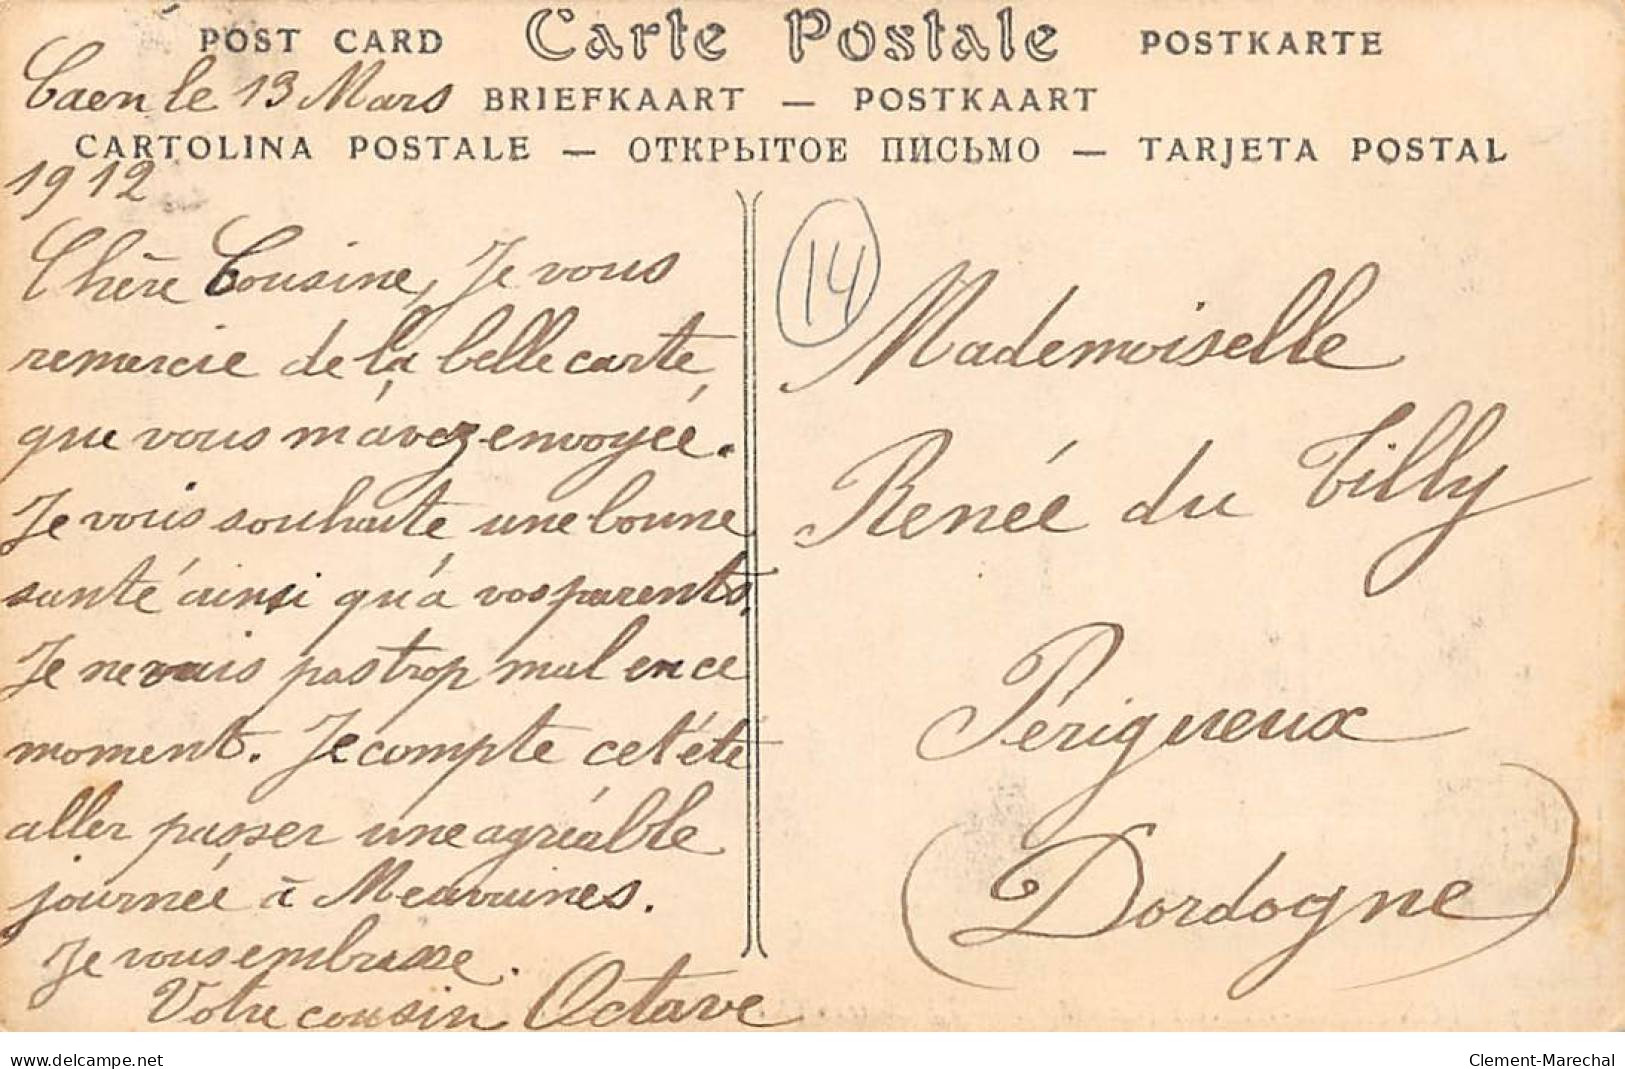 POST CARD Carte Postale POSTKARTE
BRIEFKAART — POSTKAART
CARTOLINA POSTALE — ОТКРЫТОЕ ПИСЬМО — TARJETA POSTAL
Caen le 13 Mars
1912
Chère Cousine, Je vous
remercie de la belle carte
que vous m'avez envoyée.
Je vous souhaite une bonne
santé ainsi qu'à vos parents.
Je ne vais pas trop mal en ce
moment. Je compte cet été
aller passer une agréable
journée à
Je vous embrasse.
Votre cousin Octave
14
Mademoiselle
Renée du Tilly
Périgueux
(Dordogne)
www.delcampe.net
Clement-Marechal